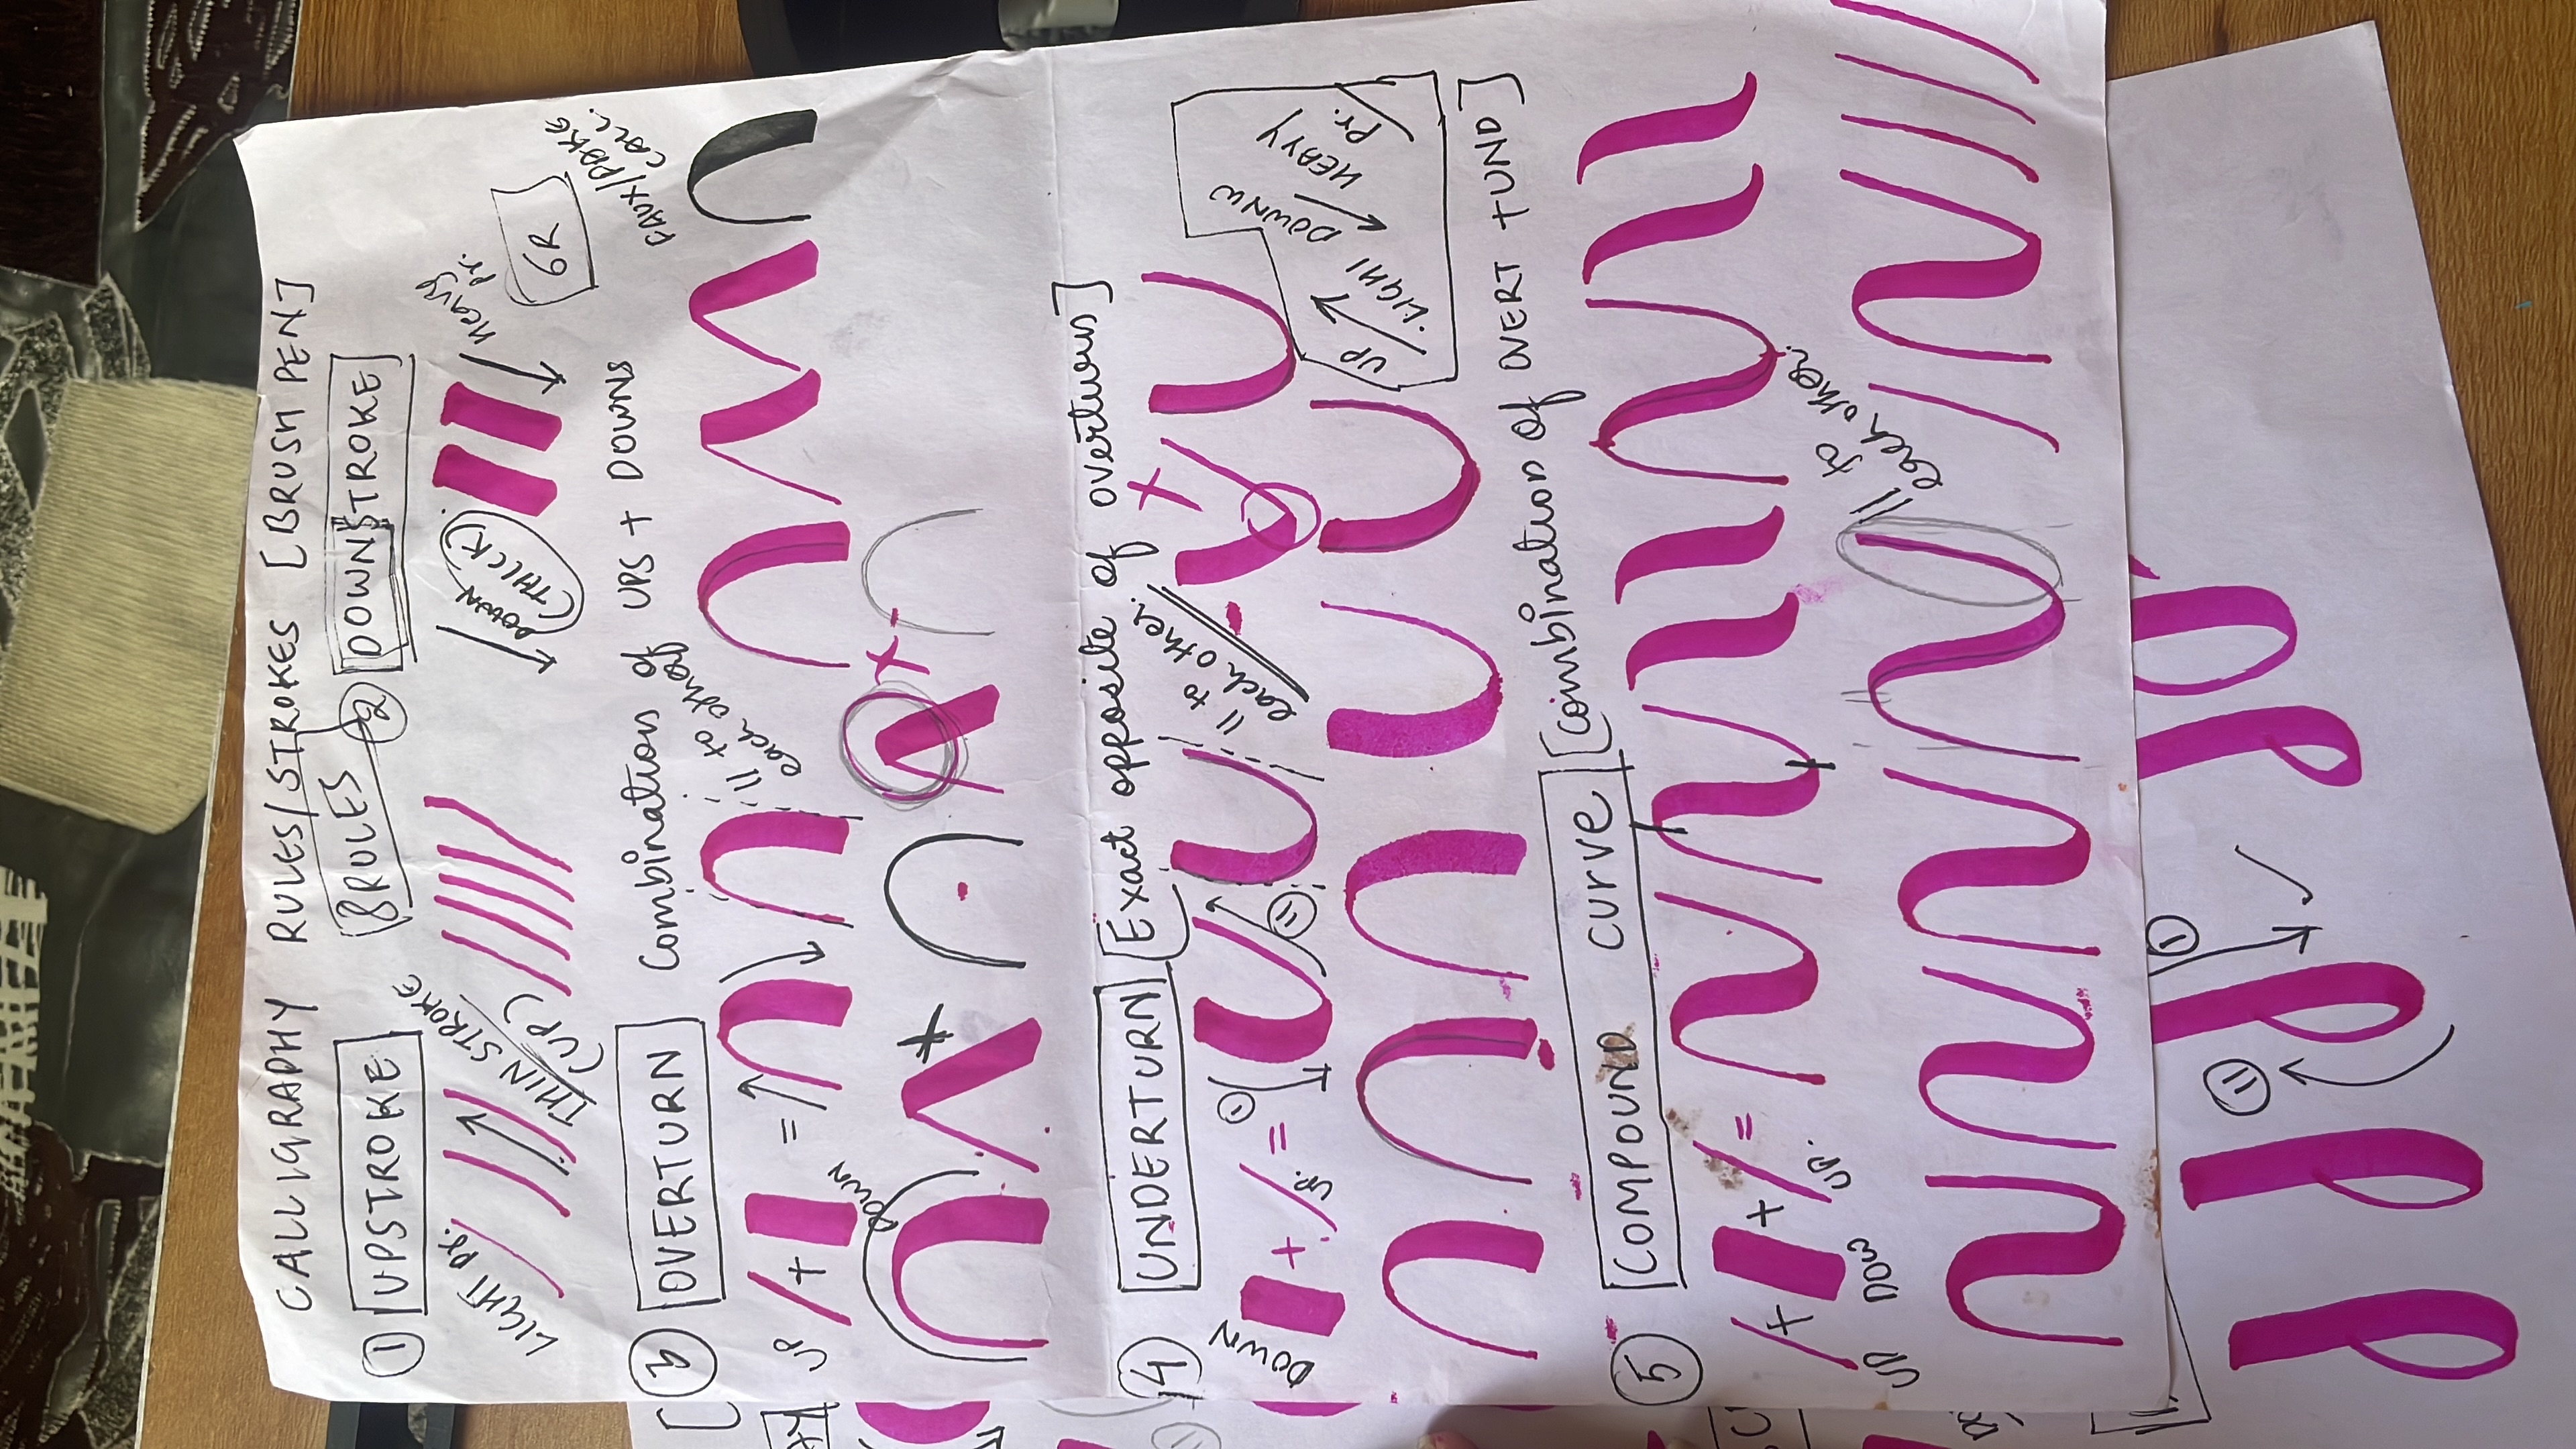 CALLIGRAPHY RULES/STROKES [BRUSH PEN]
8 RULES
① UPSTROKE
② DOWNSTROKE
LIGHT pr.
THIN STROKE
(UP)
DOWN
(THICK)
Heavy
pr.
6R
FAUX/FAKE
CALL.
③ OVERTURN
Combination of UPS + DOWNS
UP + DOWN =
11 to
each other
④ UNDERTURN [Exact opposite of overturns]
DOWN + UP. =
①
②
11 to
each other.
UP
LIGHT
DOWNW
HEAVY
Pr.
⑤ COMPOUND CURVE [Combination of OVERT + UND]
UP + DOW + UP. =
11 to
each other.
①
②